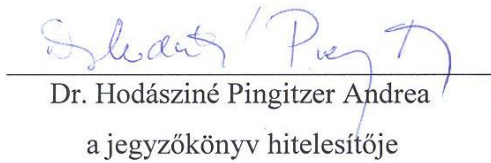 Dr. Hodásziné Pingitzer Andrea
a jegyzőkönyv hitelesítője